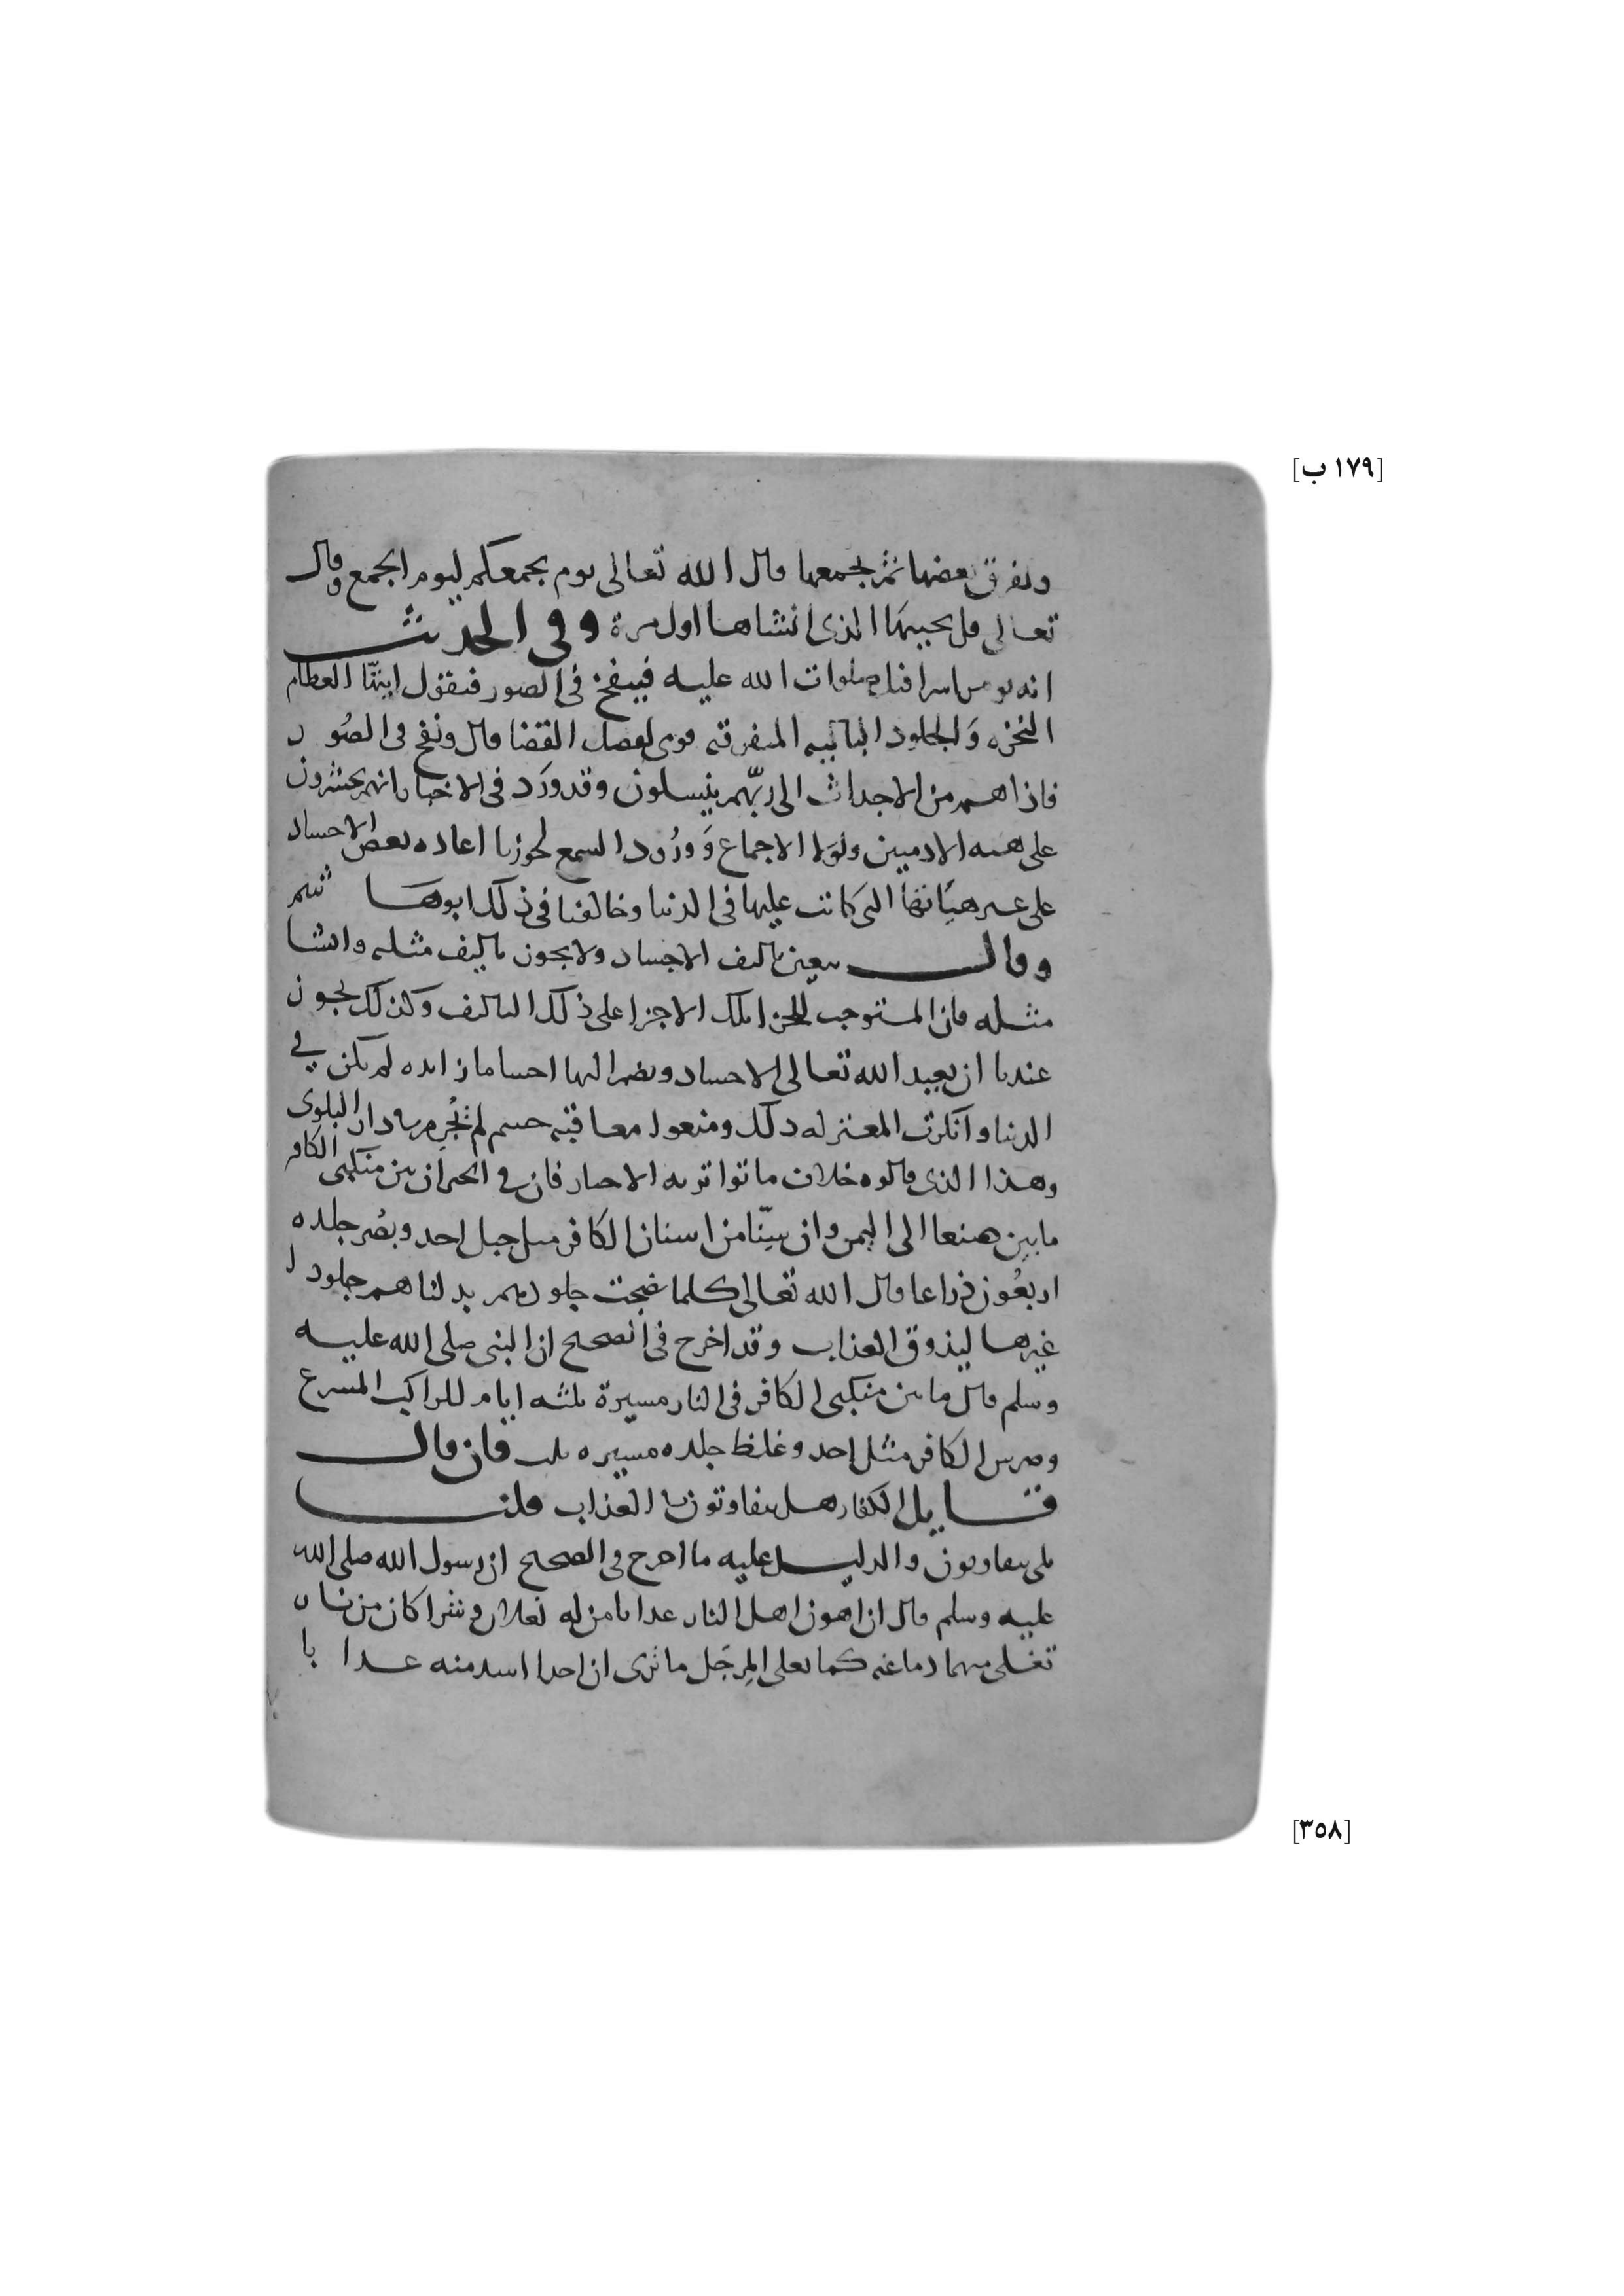 [١٧٩ ب]
وتفرق بعضها ثم يجمعها قال الله تعالى يوم يجمعكم ليوم الجمع وقال
تعالى قل يحييها الذي انشاها اول مرة وفي الحديث
انه يومر اسرافيل صلوات الله عليه فينفخ في الصور فيقول ايتها العظام
النخره والجلود الباليه المتفرقه قومي لفصل القضا قال ونفخ في الصور
فاذا هم من الاجداث الى ربهم ينسلون وقد ورد في الاخبار انهم يحشرون
على هيه الادميين ولولا الاجماع وورود السمع لجوزنا اعاده بعض الاجساد
على غير هياتها التي كانت عليها في الدنيا وخالفنا في ذلك ابو هاشم
وقال يتعين تاليف الاجساد ولا يجوز تاليف مثله وانشا
مثله فان المستوجب للجزا تلك الاجزا على ذلك التاليف وكذلك يجوز
عندنا ان يعيد الله تعالى الاجساد ويضم اليها اجساما زايده لم تكن في
الدنيا وانكرت المعتزله ذلك ومنعوا معاقبه جسم لم يجرم في دار البلوى
وهذا الذي قالوه خلاف ما تواتر به الاخبار فان في الخبر ان بين منكبي الكافر
ما بين صنعا الى اليمن وان سنا من اسنان الكافر مثل جبل احد وبصر جلده
اربعون ذراعا قال الله تعالى كلما نضجت جلودهم بدلناهم جلودا
غيرها ليذوقوا العذاب وقد اخرج في الصحيح ان النبي صلى الله عليه
وسلم قال ما بين منكبي الكافر في النار مسيرة ثلثه ايام للراكب المسرع
وضرس الكافر مثل احد وغلظ جلده مسيره ثلث فان قال
قايل الكفار هل يتفاوتون في العذاب قلنا
بلى يتفاوتون والدليل عليه ما اخرج في الصحيح ان رسول الله صلى الله
عليه وسلم قال ان اهون اهل النار عذابا من له نعلان وشراكان من نار
تغلي منهما دماغه كما يغلي المرجل ما ترى ان احدا اشد منه عذابا
[٣٥٨]